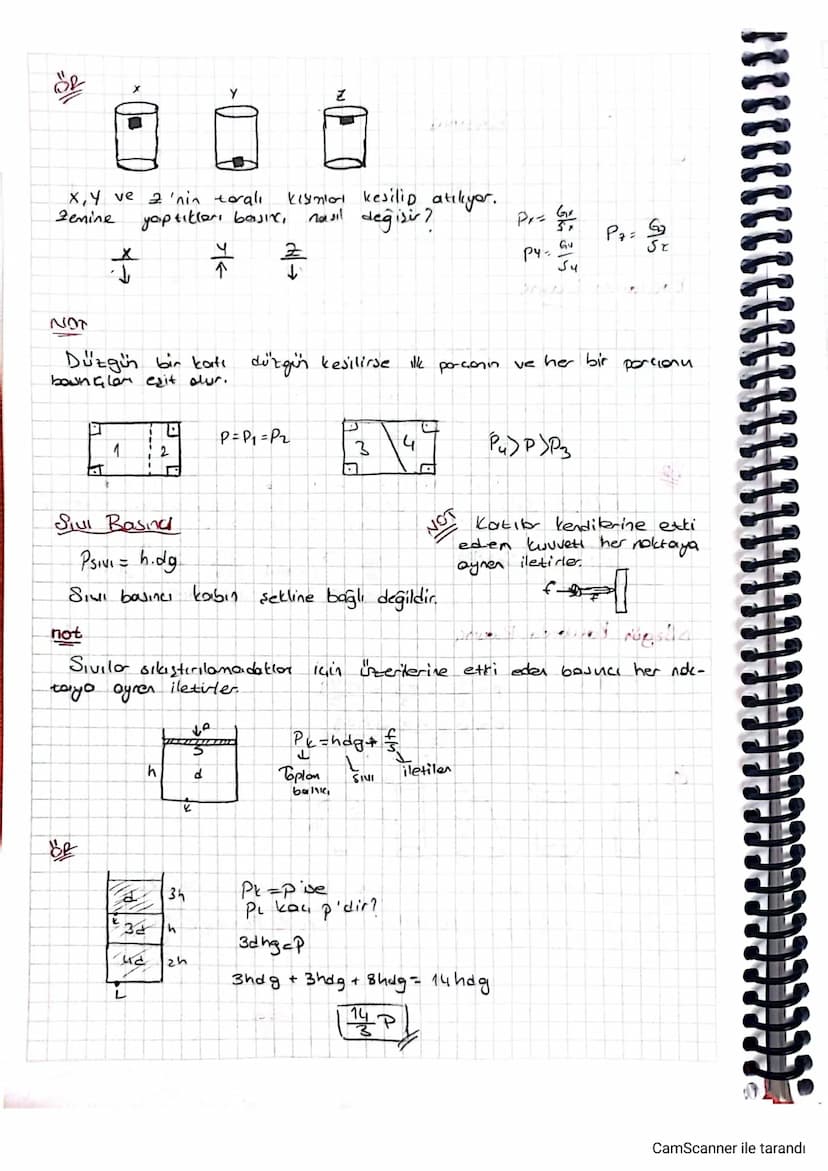 ÖR
X Y Z
X, Y ve Z'nin taralı kısımları kesilip atılıyor.
Zemine yaptıkları basınç nasıl değişir?
Px = Gx/Sx
Py = Gy/Sy
Pz = Gz/Sz
X ↓ Y ↑ Z ↓
NOT
Düzgün bir katı düzgün kesilirse ilk parçanın ve her bir parçanın
basınçları eşit olur.
1 2
P=P1=P2
3 4
P4>P>P3
Sıvı Basıncı
Psıvı = h.dg
Sıvı basıncı kabın şekline bağlı değildir.
NOT Katılar kendilerine etki
eden kuvveti her noktaya
aynen iletirler.
f F
not
Sıvılar sıkıştırılamadıkları için üzerilerine etki eden basıncı her nok-
taya aynen iletirler.
P
S
h d
K
Pk = hdg + f/s
Toplam basınç
sıvı
iletilen
ÖR
d 3h
K
3d h
4d 2h
L
Pk = P ise
PL kaç P'dir?
3dhg = P
3hdg + 3hdg + 8hdg = 14hdg
14/3 P
CamScanner ile tarandı